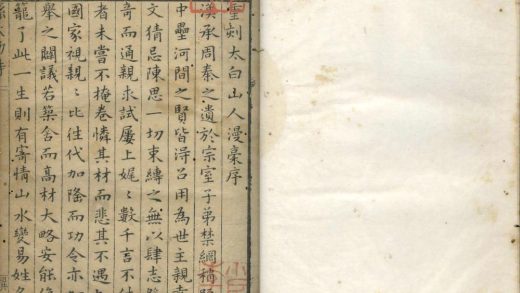 重刻太白山人漫稾序
漢承周秦之遺於宗室子弟禁綱稍
中壘河間之賢皆得召用為世主親
文猜忌陳思一切束縛之無以肆志
奇而通親求試屢上娓〻數千言不
者未嘗不掩卷憐其材而悲其不遇
國家視親〻比徃代加隆而功令亦
舉之闢議若築舍而高材大略安能
籠了此一生則有寄情山水變易姓